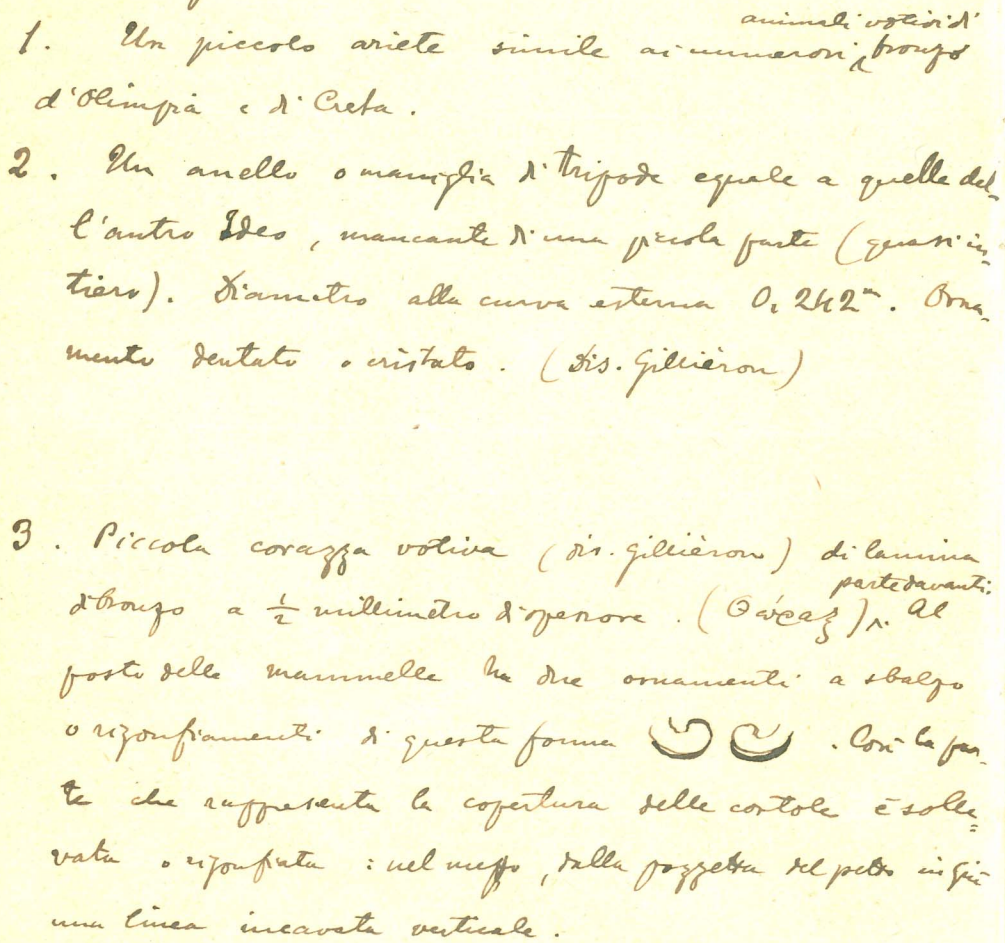 animali votivi di
1. Un piccolo ariete simile ai numerosi bronzo
d'Olimpia e di Creta.
2. Un anello o maniglia di tripode eguale a quelle del-
l'antro Ideo, mancante di una piccola parte (quasi in-
tiero). Diametro alla curva esterna 0,242ᵐ. Orna-
mento dentato o cristato. (Dis. Gillièron)
3. Piccola corazza votiva (dis. Gillièron) di lamina
parte davanti.
di bronzo a ½ millimetro di spessore. (Θώραξ) Al
posto delle mammelle ha due ornamenti a sbalzo
o rigonfiamenti di questa forma . Così la par-
te che rappresenta la copertura delle costole è solle=
vata o rigonfiata : nel mezzo, dalla pozzetta del petto in giù
una linea incavata verticale.